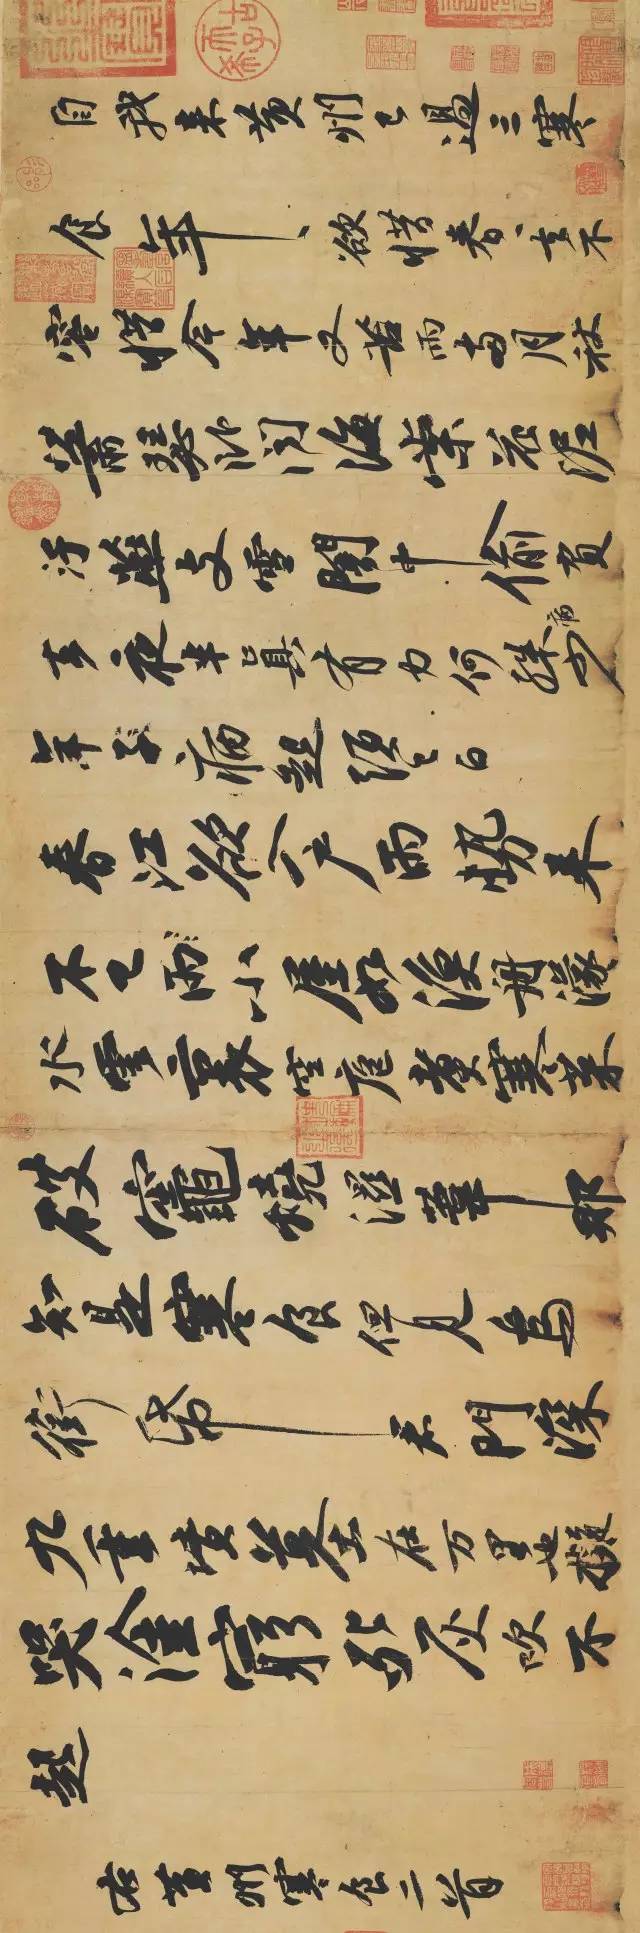 自我來黃州已過三寒
食年年欲惜春春去不
容惜今年又苦雨兩月秋
蕭瑟臥聞海棠花泥
汙燕支雪闇中偷負
去夜半真有力何殊病少
年子病起須已白
春江欲入户雨勢來
不已雨小屋如漁舟濛濛
水雲裏空庖煮寒菜
破竈燒濕葦那
知是寒食但見烏
銜帋君門深
九重墳墓在万里也擬
哭塗窮死灰吹不
起
右黃州寒食二首